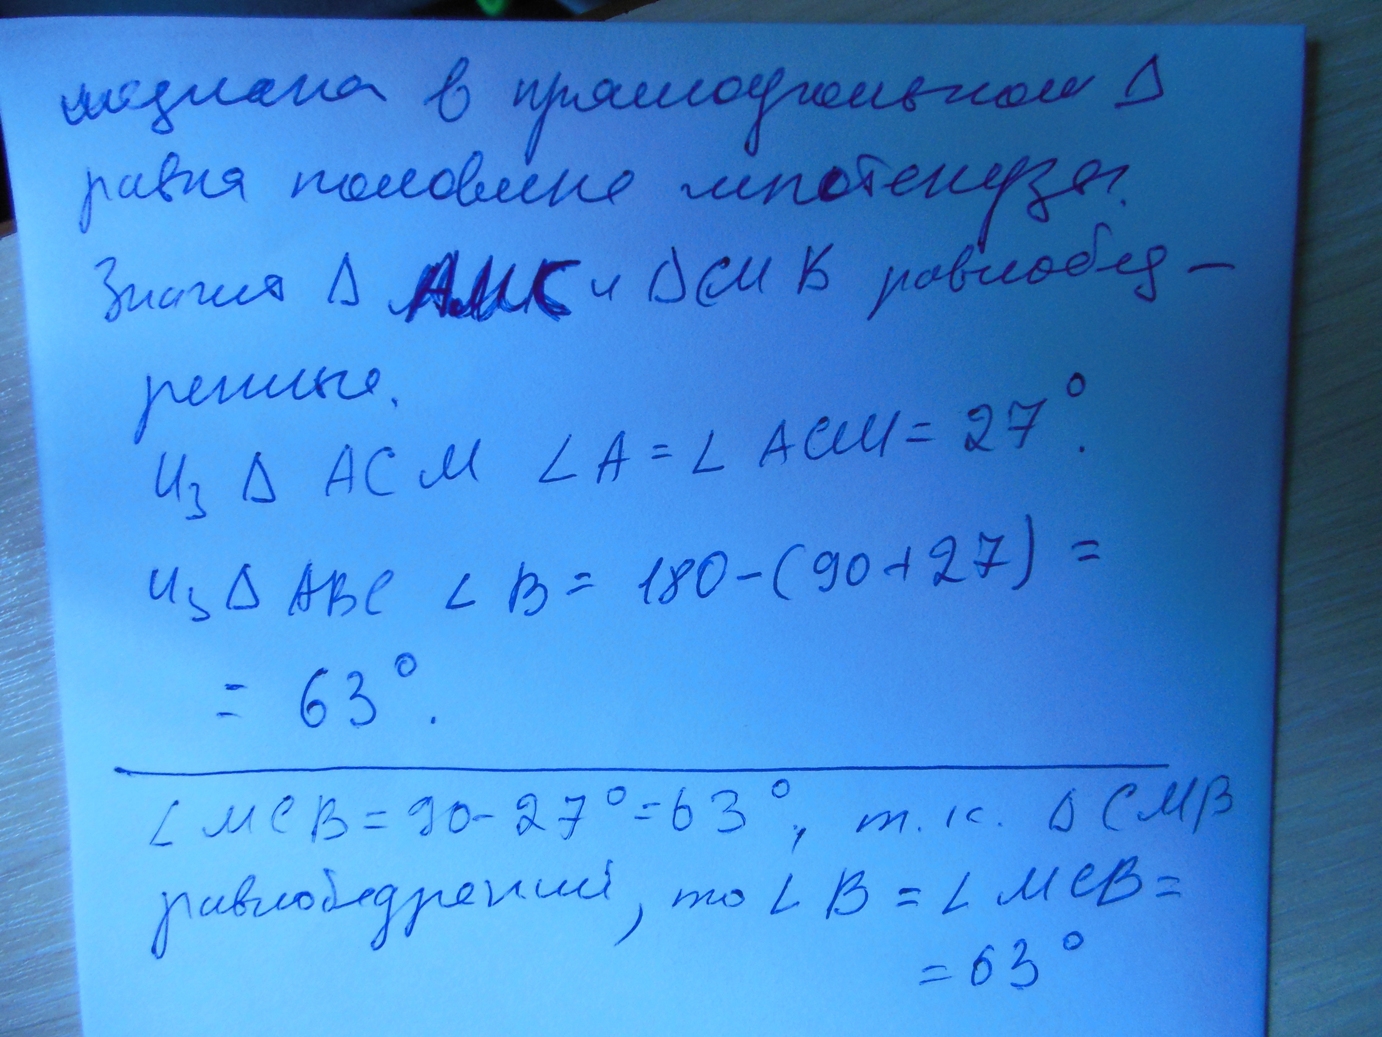 медиана в прямоугольном Δ
равна половине гипотенузы.
Значит Δ АМС и Δ СМВ равнобед-
ренные.
Из Δ АСМ ∠А = ∠АСМ = 27°.
Из Δ АВС ∠В = 180-(90+27) =
= 63°.
∠МСВ = 90-27°=63°, т.к. Δ СМВ
равнобедренный, то ∠В = ∠МСВ =
= 63°